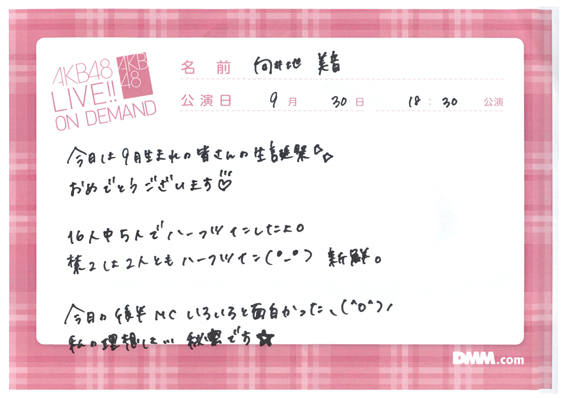 AKB48
LIVE!!
ON DEMAND
AKB
48
名 前 向井地 美音
公演日 9月 30日 18:30 公演
今日は9月生まれの皆さんの生誕祭♡♡
おめでとうございます♡
16人中5人でハーフツインしたよ。
横2は2人ともハーフツイン(°_°) 新鮮。
今日の後半MCいろいろと面白かった、(^o^)/
私の理想は... 秘密です★
DMM.com